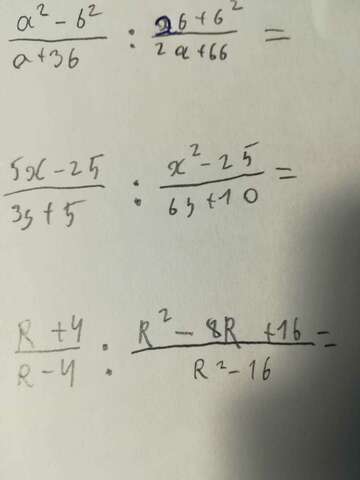 a² - b² / a+3b : ab+b² / 2a+6b =
5x-25 / 3y+5 : x²-25 / 6y+10 =
R+4 / R-4 : R² - 8R +16 / R²-16 =